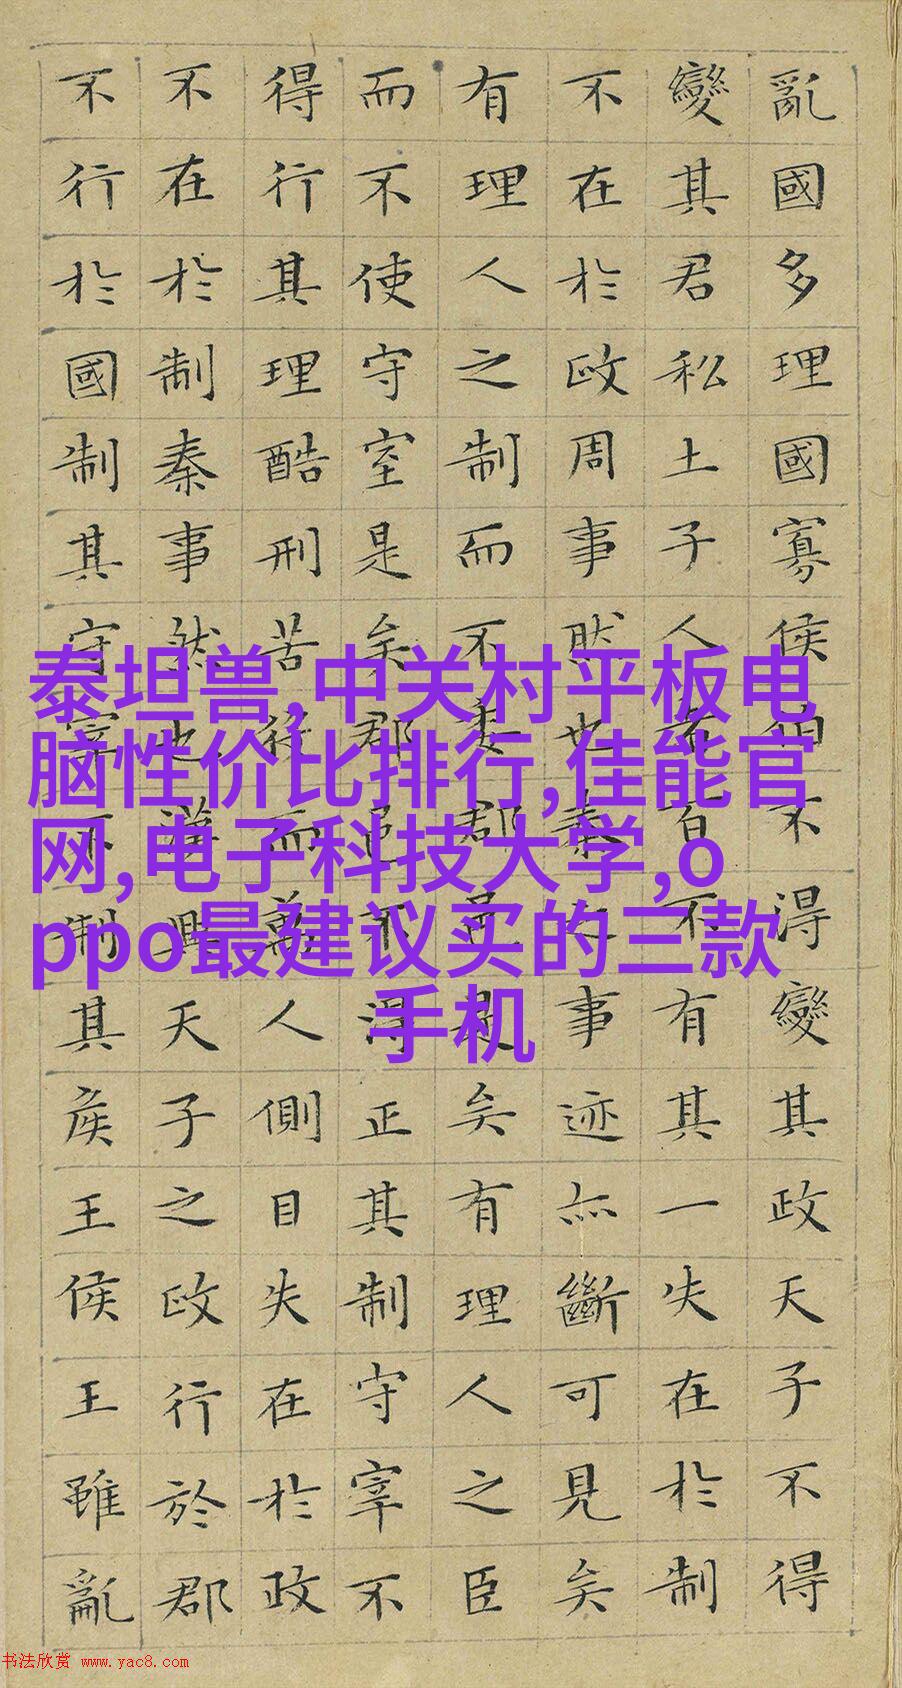 亂國多理國寡侯伯不得變其政天子不得
變其君私土子人者百不有其一失在於制
不在於政周事然也秦之事迹亦斷可見矣
有理人之制而不委郡邑是矣有理人之臣
而不使守宰是矣郡邑不得正其制守宰不
得行其理酷刑苦役而萬人側目失在於政
不在於制秦事然也漢興天子之政行於郡
不行於國制其守宰不制其侯王侯王雖亂
泰坦兽,中关村平板电
脑性价比排行,佳能官
网,电子科技大学,o
ppo最建议买的三款
手机
书法欣赏 www.yac8.com